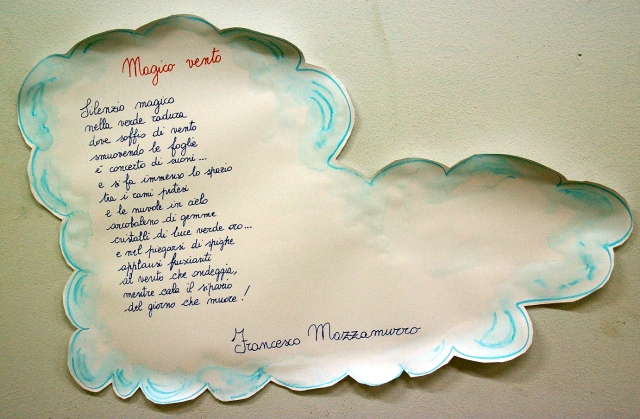 Magico vento
Silenzio magico
nella verde radura
dove soffio di vento
smuovendo le foglie
è concerto di suoni...
e si fa immenso lo spazio
tra i rami protesi
e le nuvole in cielo
arcobaleno di gemme
cristalli di luce verde oro...
e nel piegarsi di spighe
applausi fruscianti
al vento che ondeggia,
mentre cala il sipario
del giorno che muore!
Francesco Mazzamurro